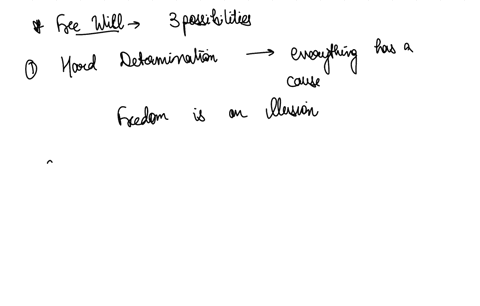 * Free Will → 3 possibilities
① Hard Determination → everything has a
cause
Freedom is an illusion